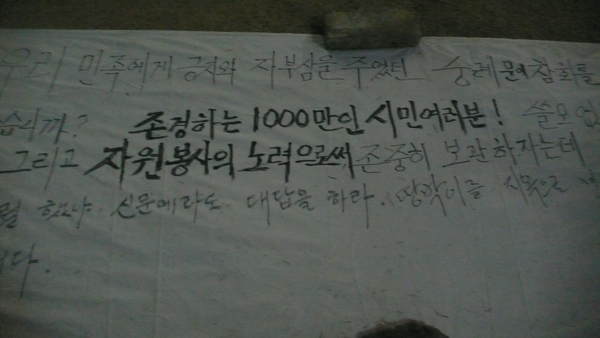 우리 민족에게 긍지와 자부심을 주었던 숭례문의 참화를
습니까? 존경하는 1000만인 시민여러분! 쓸모없
그리고 자원봉사의 노력으로써 존중히 보관하자는데
뭘 했느냐. 신문에라도 대답을 하라. 땅팍이를
니다.